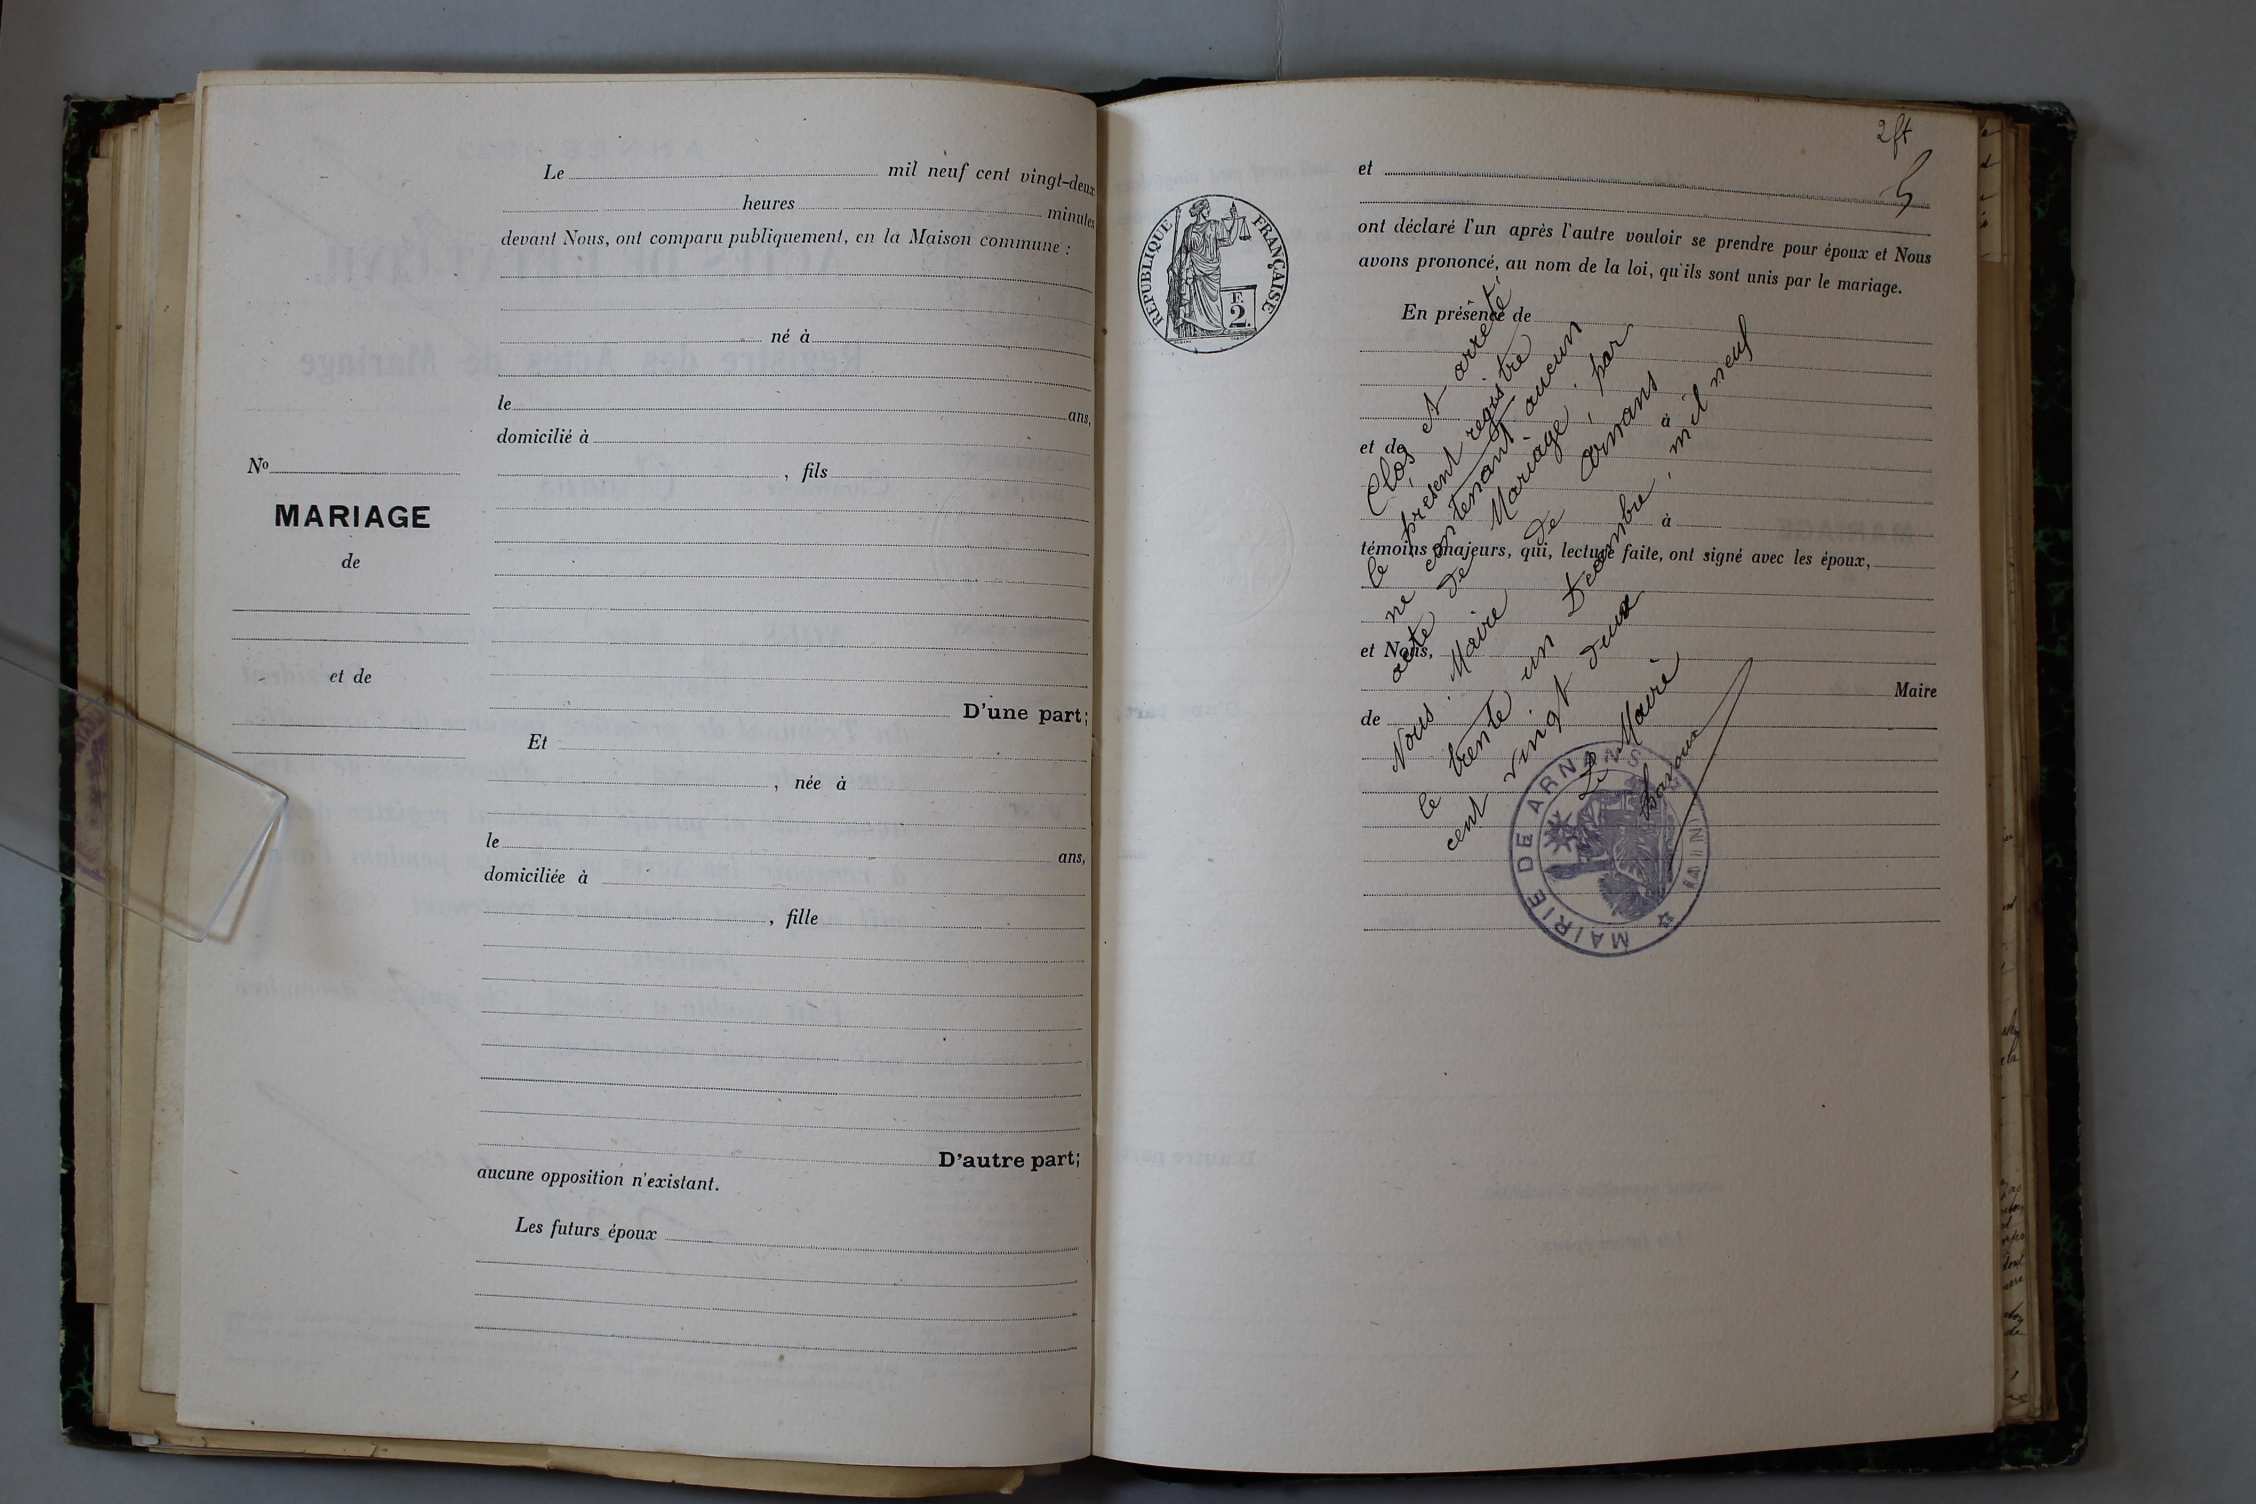 Le mil neuf cent vingt-deux
heures minutes
devant Nous, ont comparu publiquement, en la Maison commune :
né à
le ans,
domicilié à
, fils
No
MARIAGE
de
et de
D'une part;
Et
, née à
le ans,
domiciliée à
, fille
D'autre part;
aucune opposition n'existant.
Les futurs époux
2
et
RÉPUBLIQUE FRANÇAISE
F.
2.
ont déclaré l'un après l'autre vouloir se prendre pour époux et Nous
avons prononcé, au nom de la loi, qu'ils sont unis par le mariage.
En présence de
à
et de
à
témoins majeurs, qui, lecture faite, ont signé avec les époux,
et Nous,
Maire
de
Clos et arrêté
le présent registre
ne contenant aucun
acte de Mariage, par
Nous Maire de Arnans
le trente un Décembre, mil neuf
cent vingt deux
Le Maire
MAIRIE DE ARNANS
(AIN)